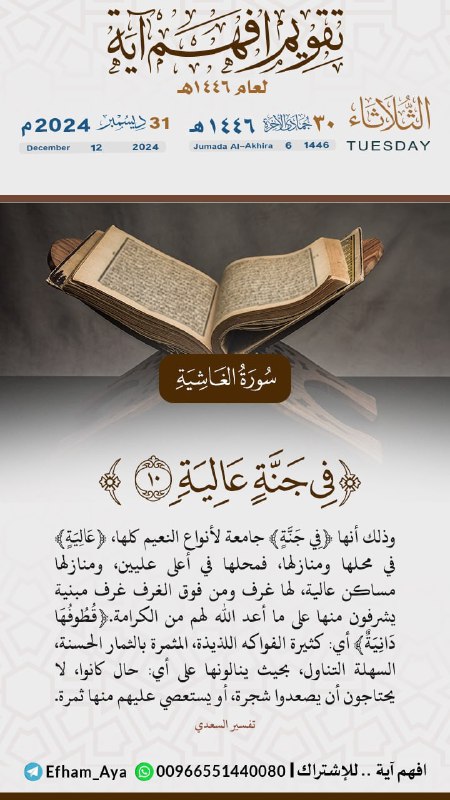 تقويم افهم آية
لعام ١٤٤٦هـ
الثُّلَاثَاء
TUESDAY
٣٠ جمادى الآخرة ١٤٤٦هـ
Jumada Al-Akhira 6 1446
31 ديسمبر 2024م
December 12 2024
سُورَةُ الغَاشِيَةِ
﴿فِي جَنَّةٍ عَالِيَةٍ ۝١٠﴾
وذلك أنها ﴿فِي جَنَّةٍ﴾ جامعة لأنواع النعيم كلها، ﴿عَالِيَةٍ﴾
في محلها ومنازلها، فمحلها في أعلى عليين، ومنازلها
مساكن عالية، لها غرف ومن فوق الغرف غرف مبنية
يشرفون منها على ما أعد الله لهم من الكرامة.﴿قُطُوفُهَا
دَانِيَةٌ﴾ أي: كثيرة الفواكه اللذيذة، المثمرة بالثمار الحسنة،
السهلة التناول، بحيث ينالونها على أي: حال كانوا، لا
يحتاجون أن يصعدوا شجرة، أو يستعصي عليهم منها ثمرة.
تفسير السعدي
افهم آية .. للإشتراك | 00966551440080 Efham_Aya